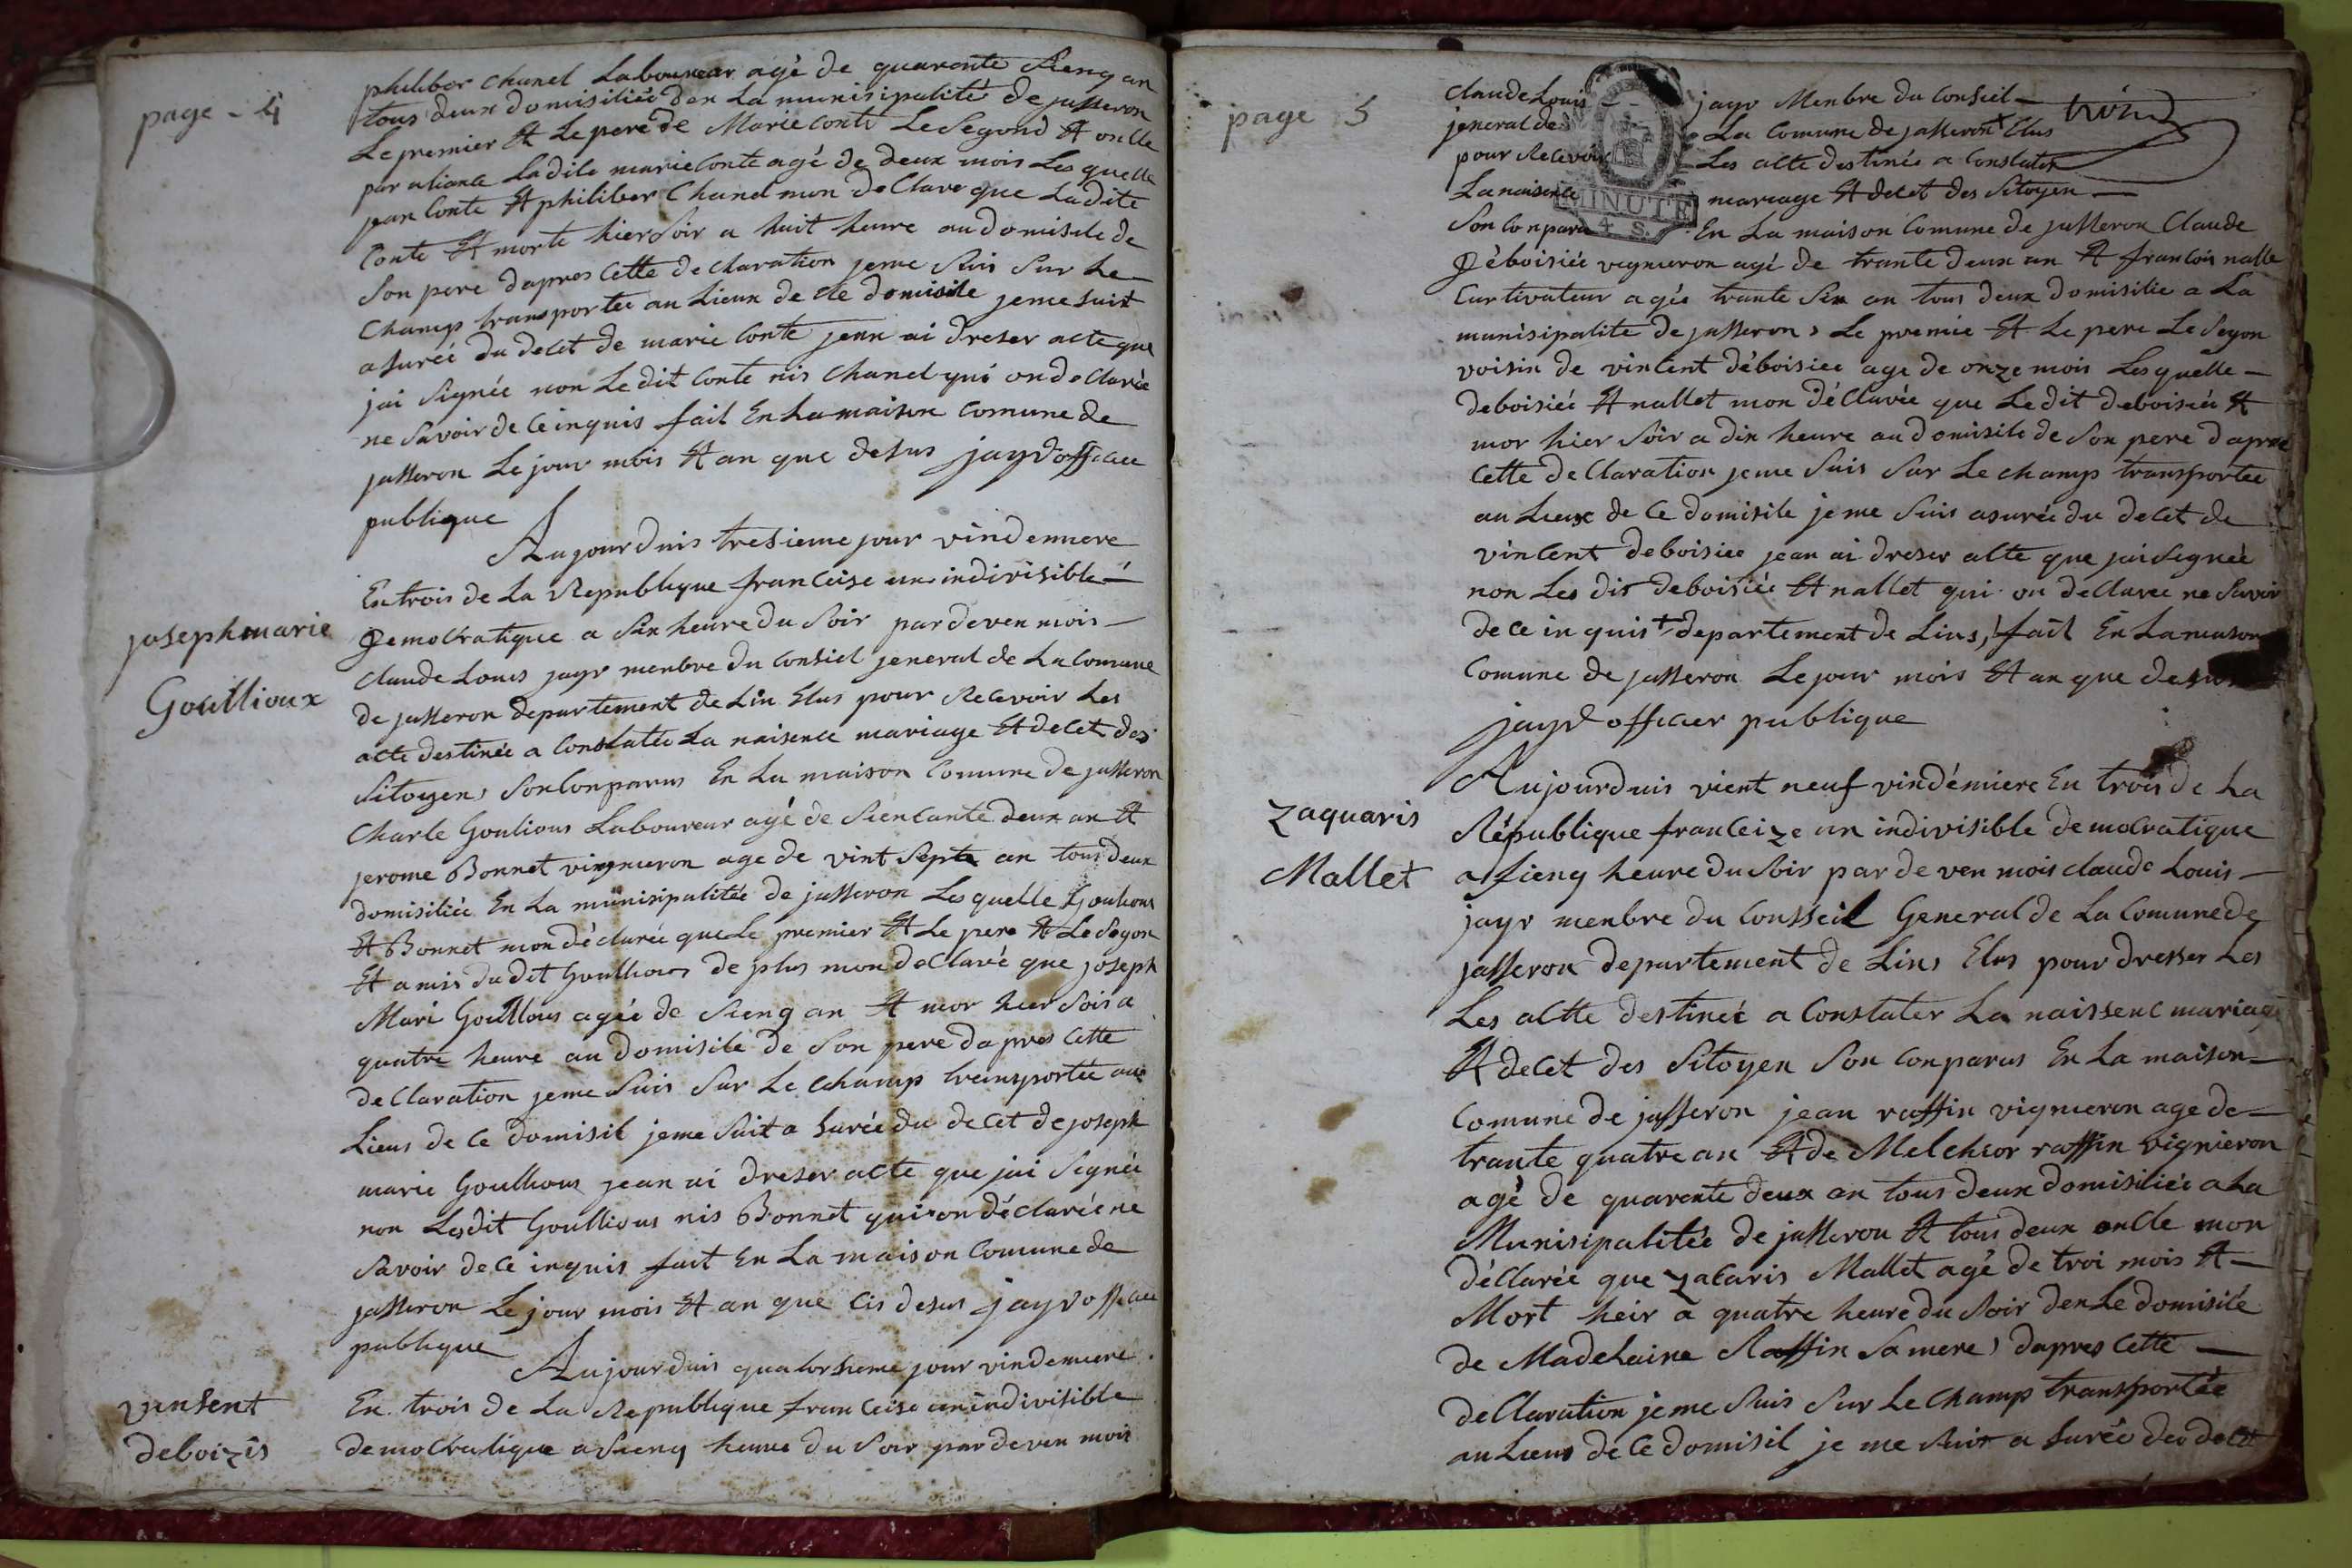 page - 4
philiber chanel Laboureur agé de quarante Sienq an
tous deux domisiliée den La munisipalité de jasseron
Le premier Et Le pere de Marie conte Le Segond Et oncle
par aliance Ladite marie Conte agé de deux mois Les quelle
jean Conte Et philiber Chanel mon de Clare que Ladite
Conte Et morte hier Soir a huit heure au domisile de
Son pere dapres Cette de claration jeme Suis Sur Le
Champ transportée au Lieux de ce domisile jeme suit
asurée du decet de marie Conte jean ai dreser acte que
jai Signée non Le dit Conte nis Chanel qui on de Clarée
ne Savoir de Ce inquis fait En La maison Comune de
jasseron Le jour mois Et an que desus jayr officier
publique
Aujourduis tresieme jour vindemiere
En trois de La Republique franceise un indivisible
Demockratique a Six heure du Soir par deven mois
Claude Louis jayr menbre du Consiel jeneral de La Comune
de jasseron departement de Lin Elus pour Recevoir Les
acte destinée a Constatée La naisence mariage Et decet des
Sitoyens Son Conparus En La maison Comune de jasseron
josephmarie
Goullioux
Charle Goulious Laboureur agé de Siencante deux an Et
jerome Bonnet vignieron age de vint Septe an tous deux
domisiliée En La münisipalitée de jasseron Les quelle Goulious
Et Bonnet mon déclarée que Le premier Et Le pere Et Le Segon
Et amis du dit Goullious de plus mon de Clarée que joseph
Mari Goullious agée de Sienq an Et mor hier Soir a
quatre heure au domisile de Son pere dapres Cette
de Claration jeme Suis Sur Le Champ transportée au
Lieus de Ce domisil jeme Suit a Surée du decet de joseph
marie Goullious jean ai dreser acte que jai Signée
non Lesdit Goullious nis Bonnet qui on déclarée ne
Savoir de Ce inquis fait En La maison Comune de
jasseron Le jour mois Et an que Cis desus jayr officier
publique
Aujourduis quatorsieme jour vindemiere
vinsent
deboizis
En trois de La Republique franceise un indivisible
democratique a Sienq heure du Soir par deven mois
page 5
Claude Louis jayr Menbre du Conseil
jeneral de La Comune de jasseron Elus
pour Recevoir Les acte destinée a Constater
La naisence mariage Et decet des Sitoyen
MINUTE
4 S.
Son Conparu En La maison Comune de jasseron Claude
Déboisiée vignieron agé de trante deux an Et francois nallet
Curtivateur agée trante Six an tous deux domisilie a La
munisipalite de jasseron Le premie Et Le pere Le Segon
voisin de vincent déboisiee age de onze mois Lesquelle
deboisiée Et nallet mon dé Clarée que Le dit deboisiée Et
mor hier Soir a dix heure au domisile de Son pere dapres
Cette de Claration jeme Suis Sur Le champ transportée
au Lieux de Ce domisile je me Suis asurée du decet de
vincent deboisiee jean ai dreser alte que jai Signée
non Les dit deboisiée Et nallet qui on de Claree ne Savoir
de Ce inquis + departement de Lins, fait En La maison
Comune de jasseron Le jour mois Et an que desus
jayr officier publique
Aujourduis vient neuf vindémiere En trois de La
zaquaris
Mallet
République franceize un indivisible democratique
a Sienq heure du Soir par de ven mois Claude Louis
jayr menbre du Consseil General de La Comune de
jasseron departement de Lins Elus pour dresser Les
Les alte destineé a Constater La naissenc mariage
Et decet des Sitoyen Son Conparus En La maison
Comune de jasseron jean raffin vignieron age de
trante quatre an Et de Melchior raffin vignieron
agé de quarente deux an tous deux domisiliée a La
Munisipalitée de jasseron Et tous deux oncle mon
déClarée que zacaris Mallet agé de troi mois Et
Mort heir a quatre heure du Soir den Le domisile
de Madelaine Raffin Sa mere, dapres Cette
de Claration je me Suis Sur Le Champ transportée
au Lieus de Ce domisil je me Suis a Surée deo decet